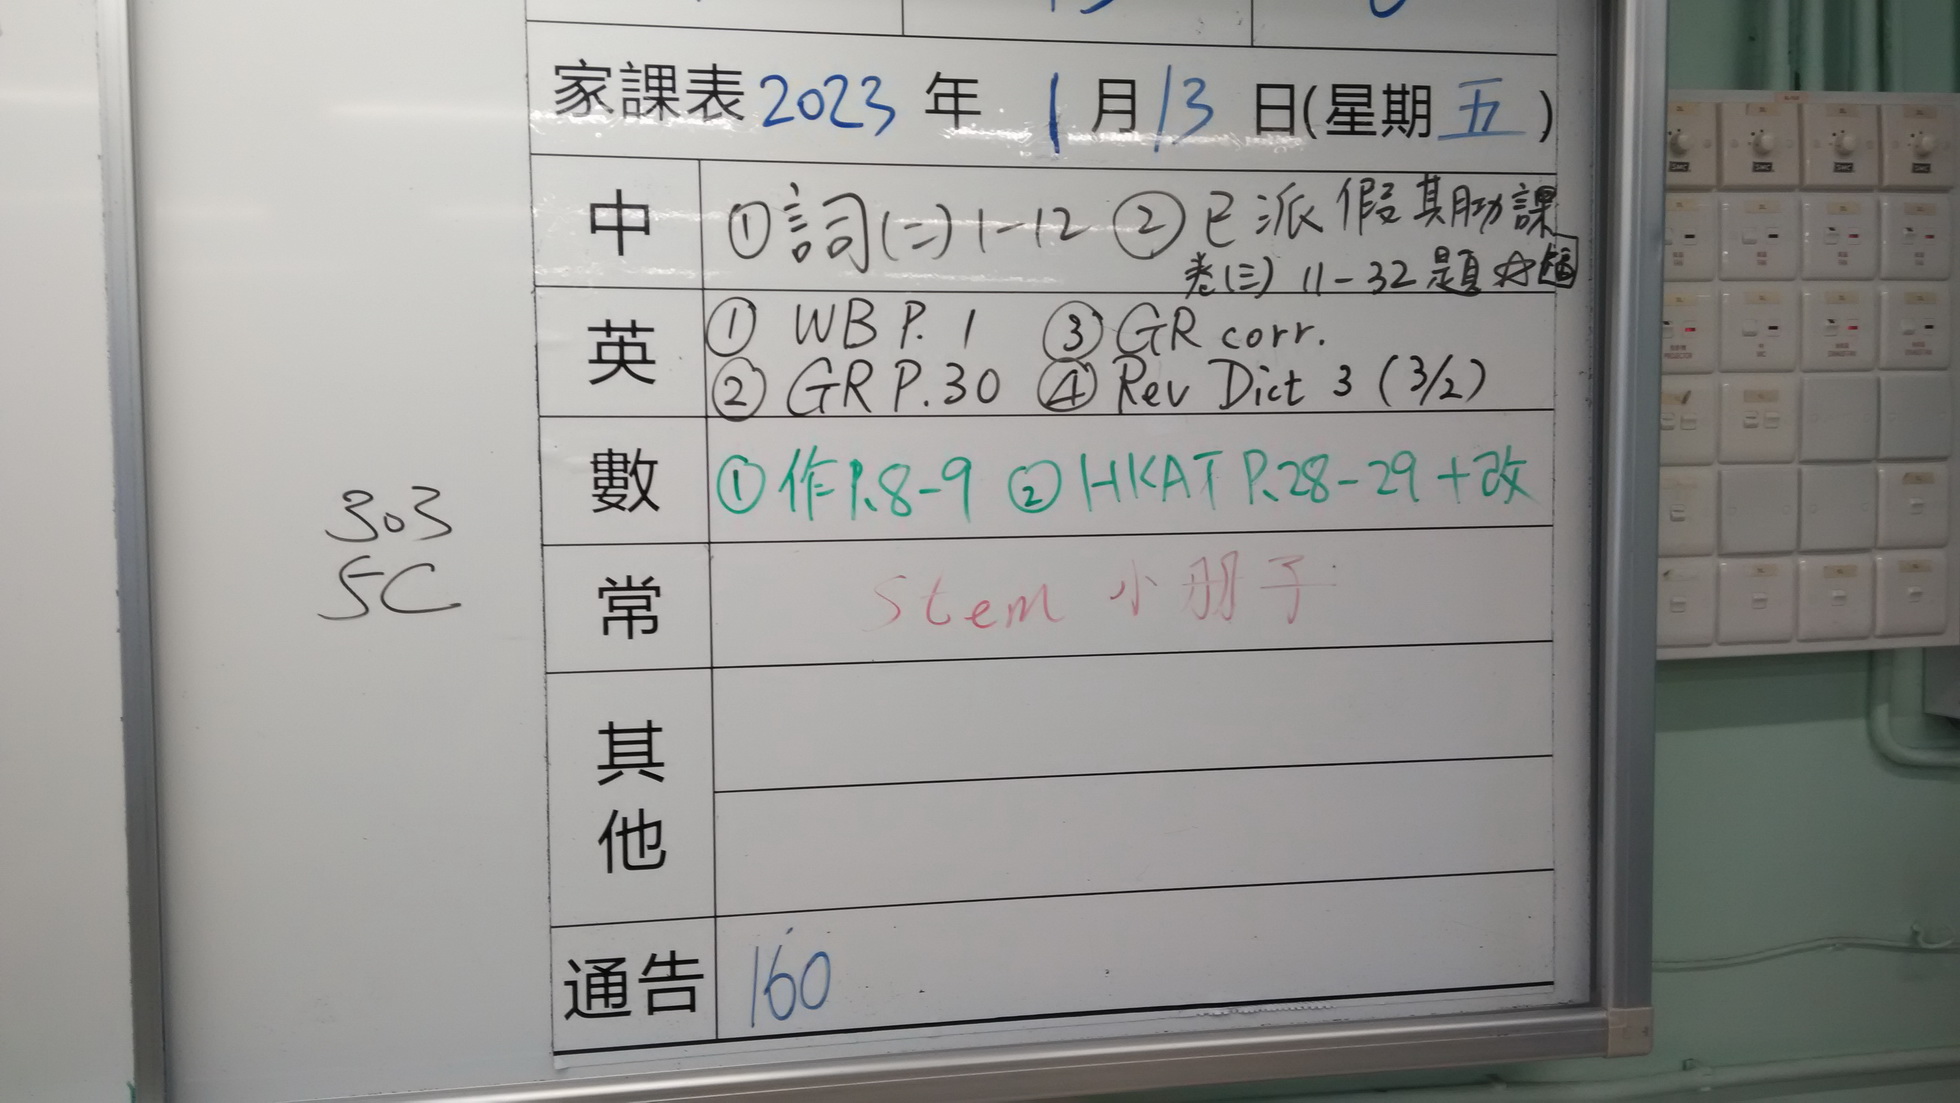 家課表 2023 年 1 月 13 日(星期 五)
中 ① 詞(二) 1-12 ② 已派假期功課
卷(三) 11-32題
英 ① WB P. 1 ③ GR corr.
② GR P.30 ④ Rev Dict 3 (3/2)
數 ① 作 P.8-9 ② HKAT P.28-29 + 改
常 Stem 小册子
其他
通告 160
303
5C